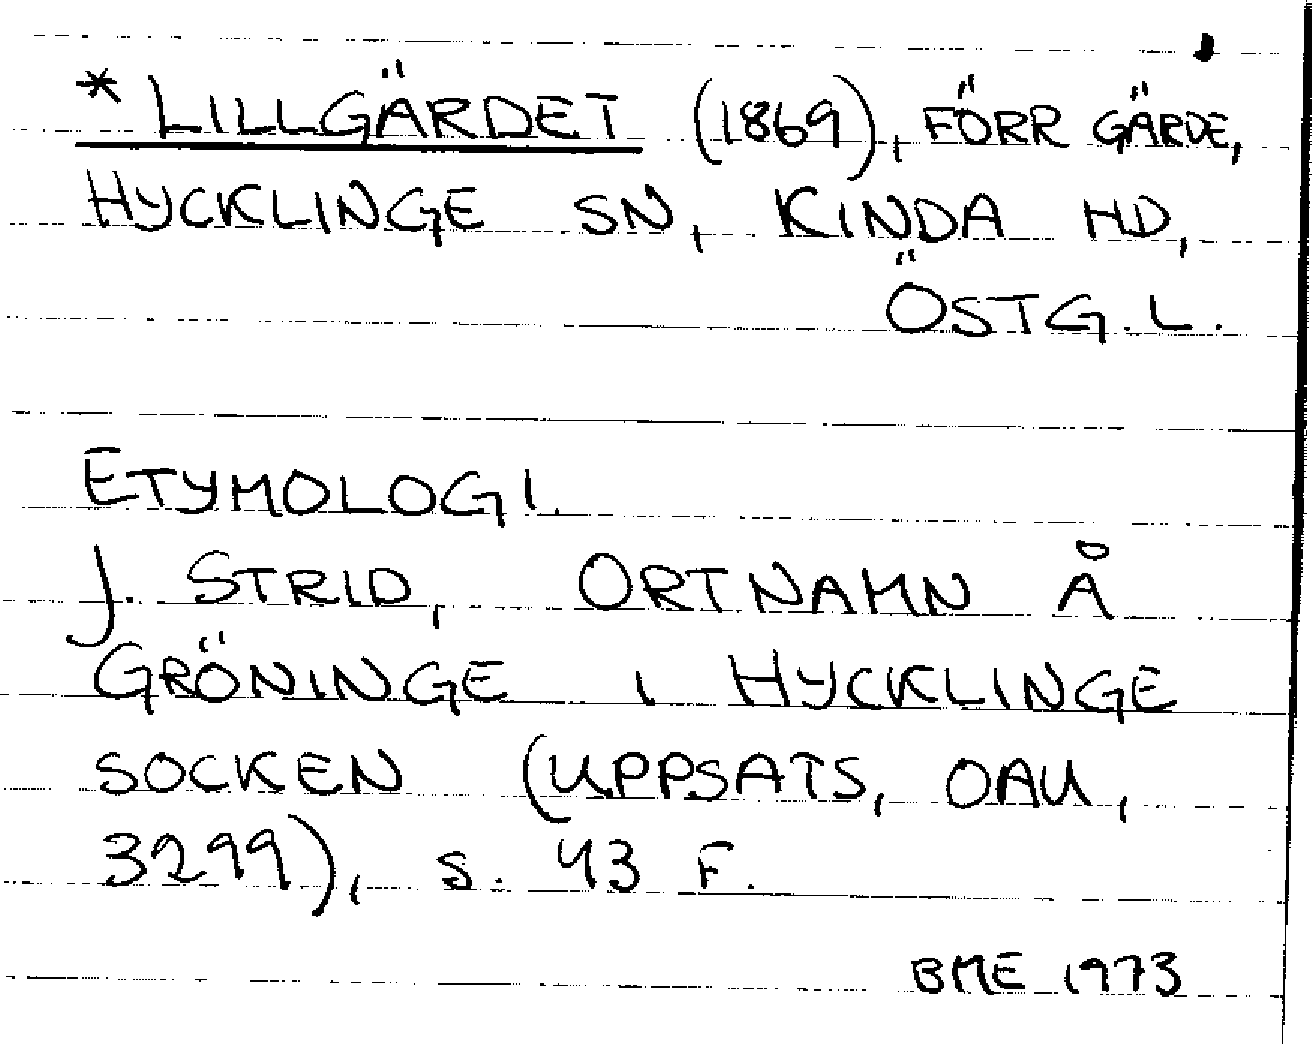 * LILLGÄRDET (1869), FÖRR GÄRDE,
HYCKLINGE SN, KINDA HD,
ÖSTG. L.
ETYMOLOGI.
J. STRID, ORTNAMN Å
GRÖNINGE I HYCKLINGE
SOCKEN (UPPSATS, OAU,
3299), S. 43 F.
BME 1973